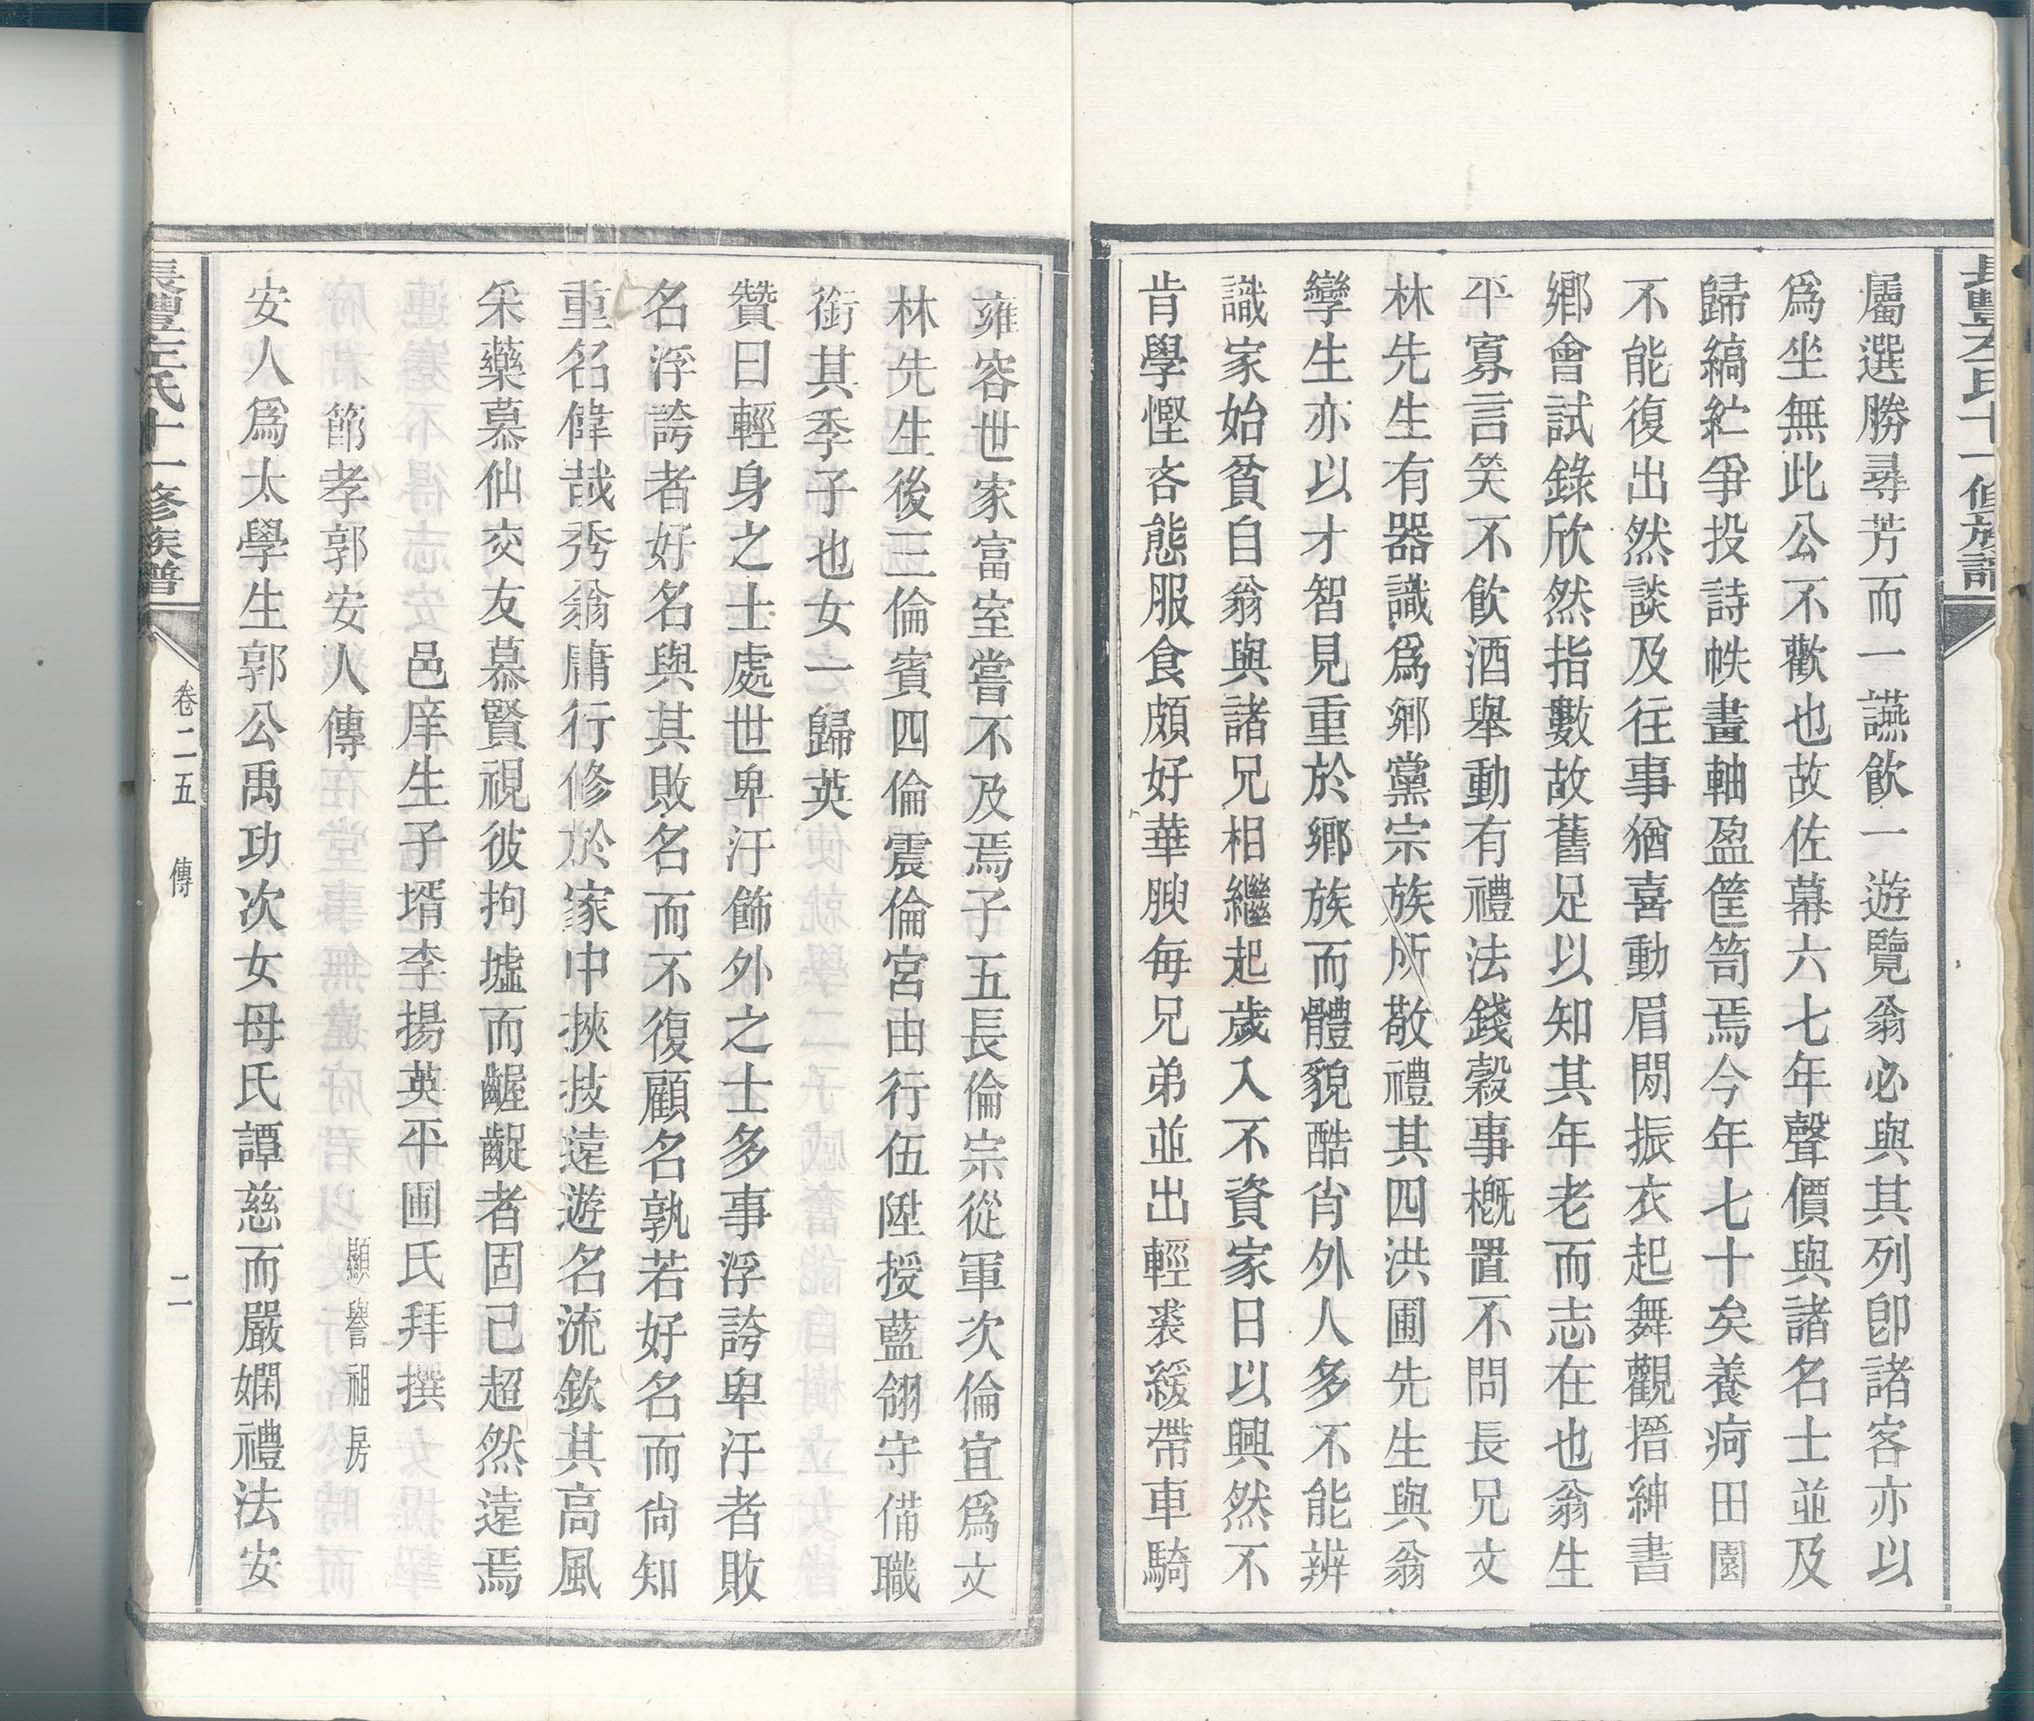 長豐左氏十一修族譜
屬選勝尋芳而一讌飲一遊覽翁必與其列卽諸客亦以
爲坐無此公不歡也故佐幕六七年聲價與諸名士並及
歸縞紵爭投詩帙畫軸盈筐笥焉今年七十矣養疴田園
不能復出然談及往事猶喜動眉閒振衣起舞觀搢紳書
鄉會試錄欣然指數故舊足以知其年老而志在也翁生
平寡言笑不飲酒舉動有禮法錢穀事槪置不問長兄文
林先生有器識爲鄉黨宗族所敬禮其四洪圃先生與翁
孿生亦以才智見重於鄉族而體貌酷肖外人多不能辨
識家始貧自翁與諸兄相繼起歲入不資家日以興然不
肯學慳吝態服食頗好華腴每兄弟並出輕裘緩帶車騎
雍容世家富室嘗不及焉子五長倫宗從軍次倫宜爲文
林先生後三倫賓四倫震倫宮由行伍陞授藍翎守備職
銜其季子也女一歸英
贊曰輕身之士處世卑汙飾外之士多事浮誇卑汙者敗
名浮誇者好名與其敗名而不復顧名孰若好名而尙知
重名偉哉秀翁庸行修於家中挾技遠遊名流欽其高風
采藥慕仙交友慕賢視彼拘墟而齷齪者固已超然遠焉
邑庠生子壻李揚英平圃氏拜撰
節孝郭安人傳
顯譽祖房
安人爲太學生郭公禹功次女母氏譚慈而嚴嫻禮法安
長豐左氏十一修族譜
卷二五
傳
二